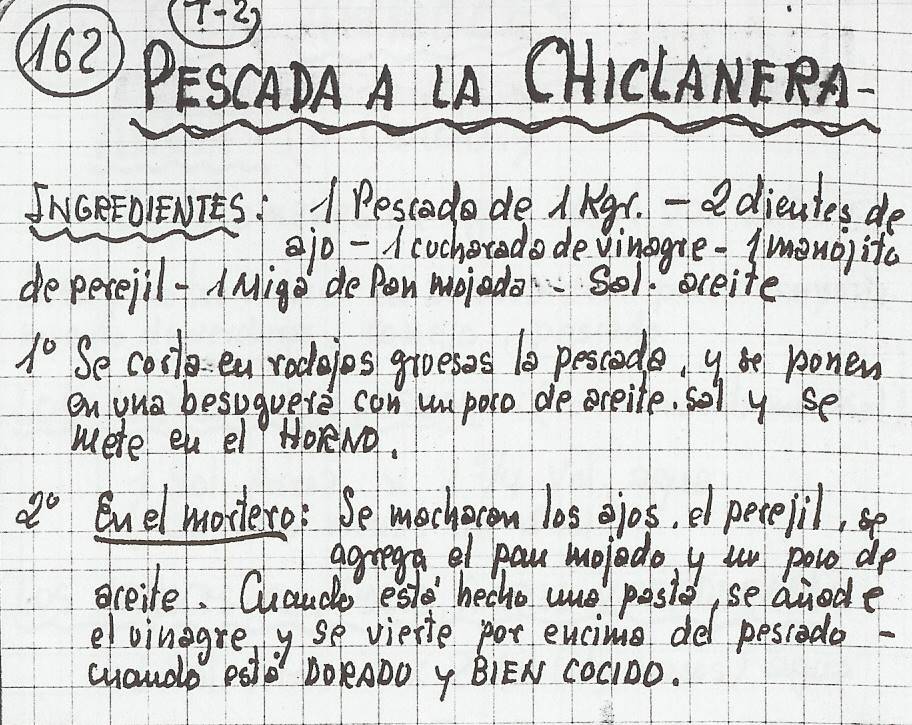 T-2
162
PESCADA A LA CHICLANERA-
INGREDIENTES: 1 Pescada de 1 Kgr. - 2 dientes de
ajo - 1 cucharada de vinagre - 1 manojito
de perejil - 1 Miga de Pan mojada - Sal. aceite
1º Se corta en rodajas gruesas la pescada, y se ponen
en una besuguera con un poco de aceite. sal y se
mete en el HORNO.
2º En el mortero: Se machacan los ajos, el perejil, se
agrega el pan mojado y un poco de
aceite. Cuando está hecho una pasta, se añade
el vinagre, y se vierte por encima del pescado -
cuando está DORADO y BIEN COCIDO.